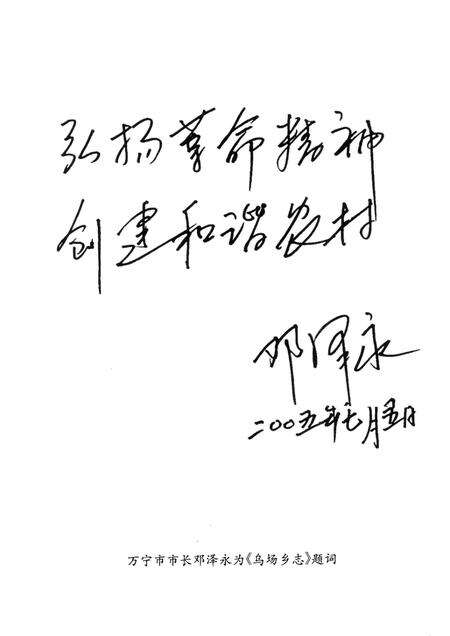 弘扬革命精神
创建和谐农村
邓泽永
二〇〇五年七月五日
万宁市市长邓泽永为《乌场乡志》题词